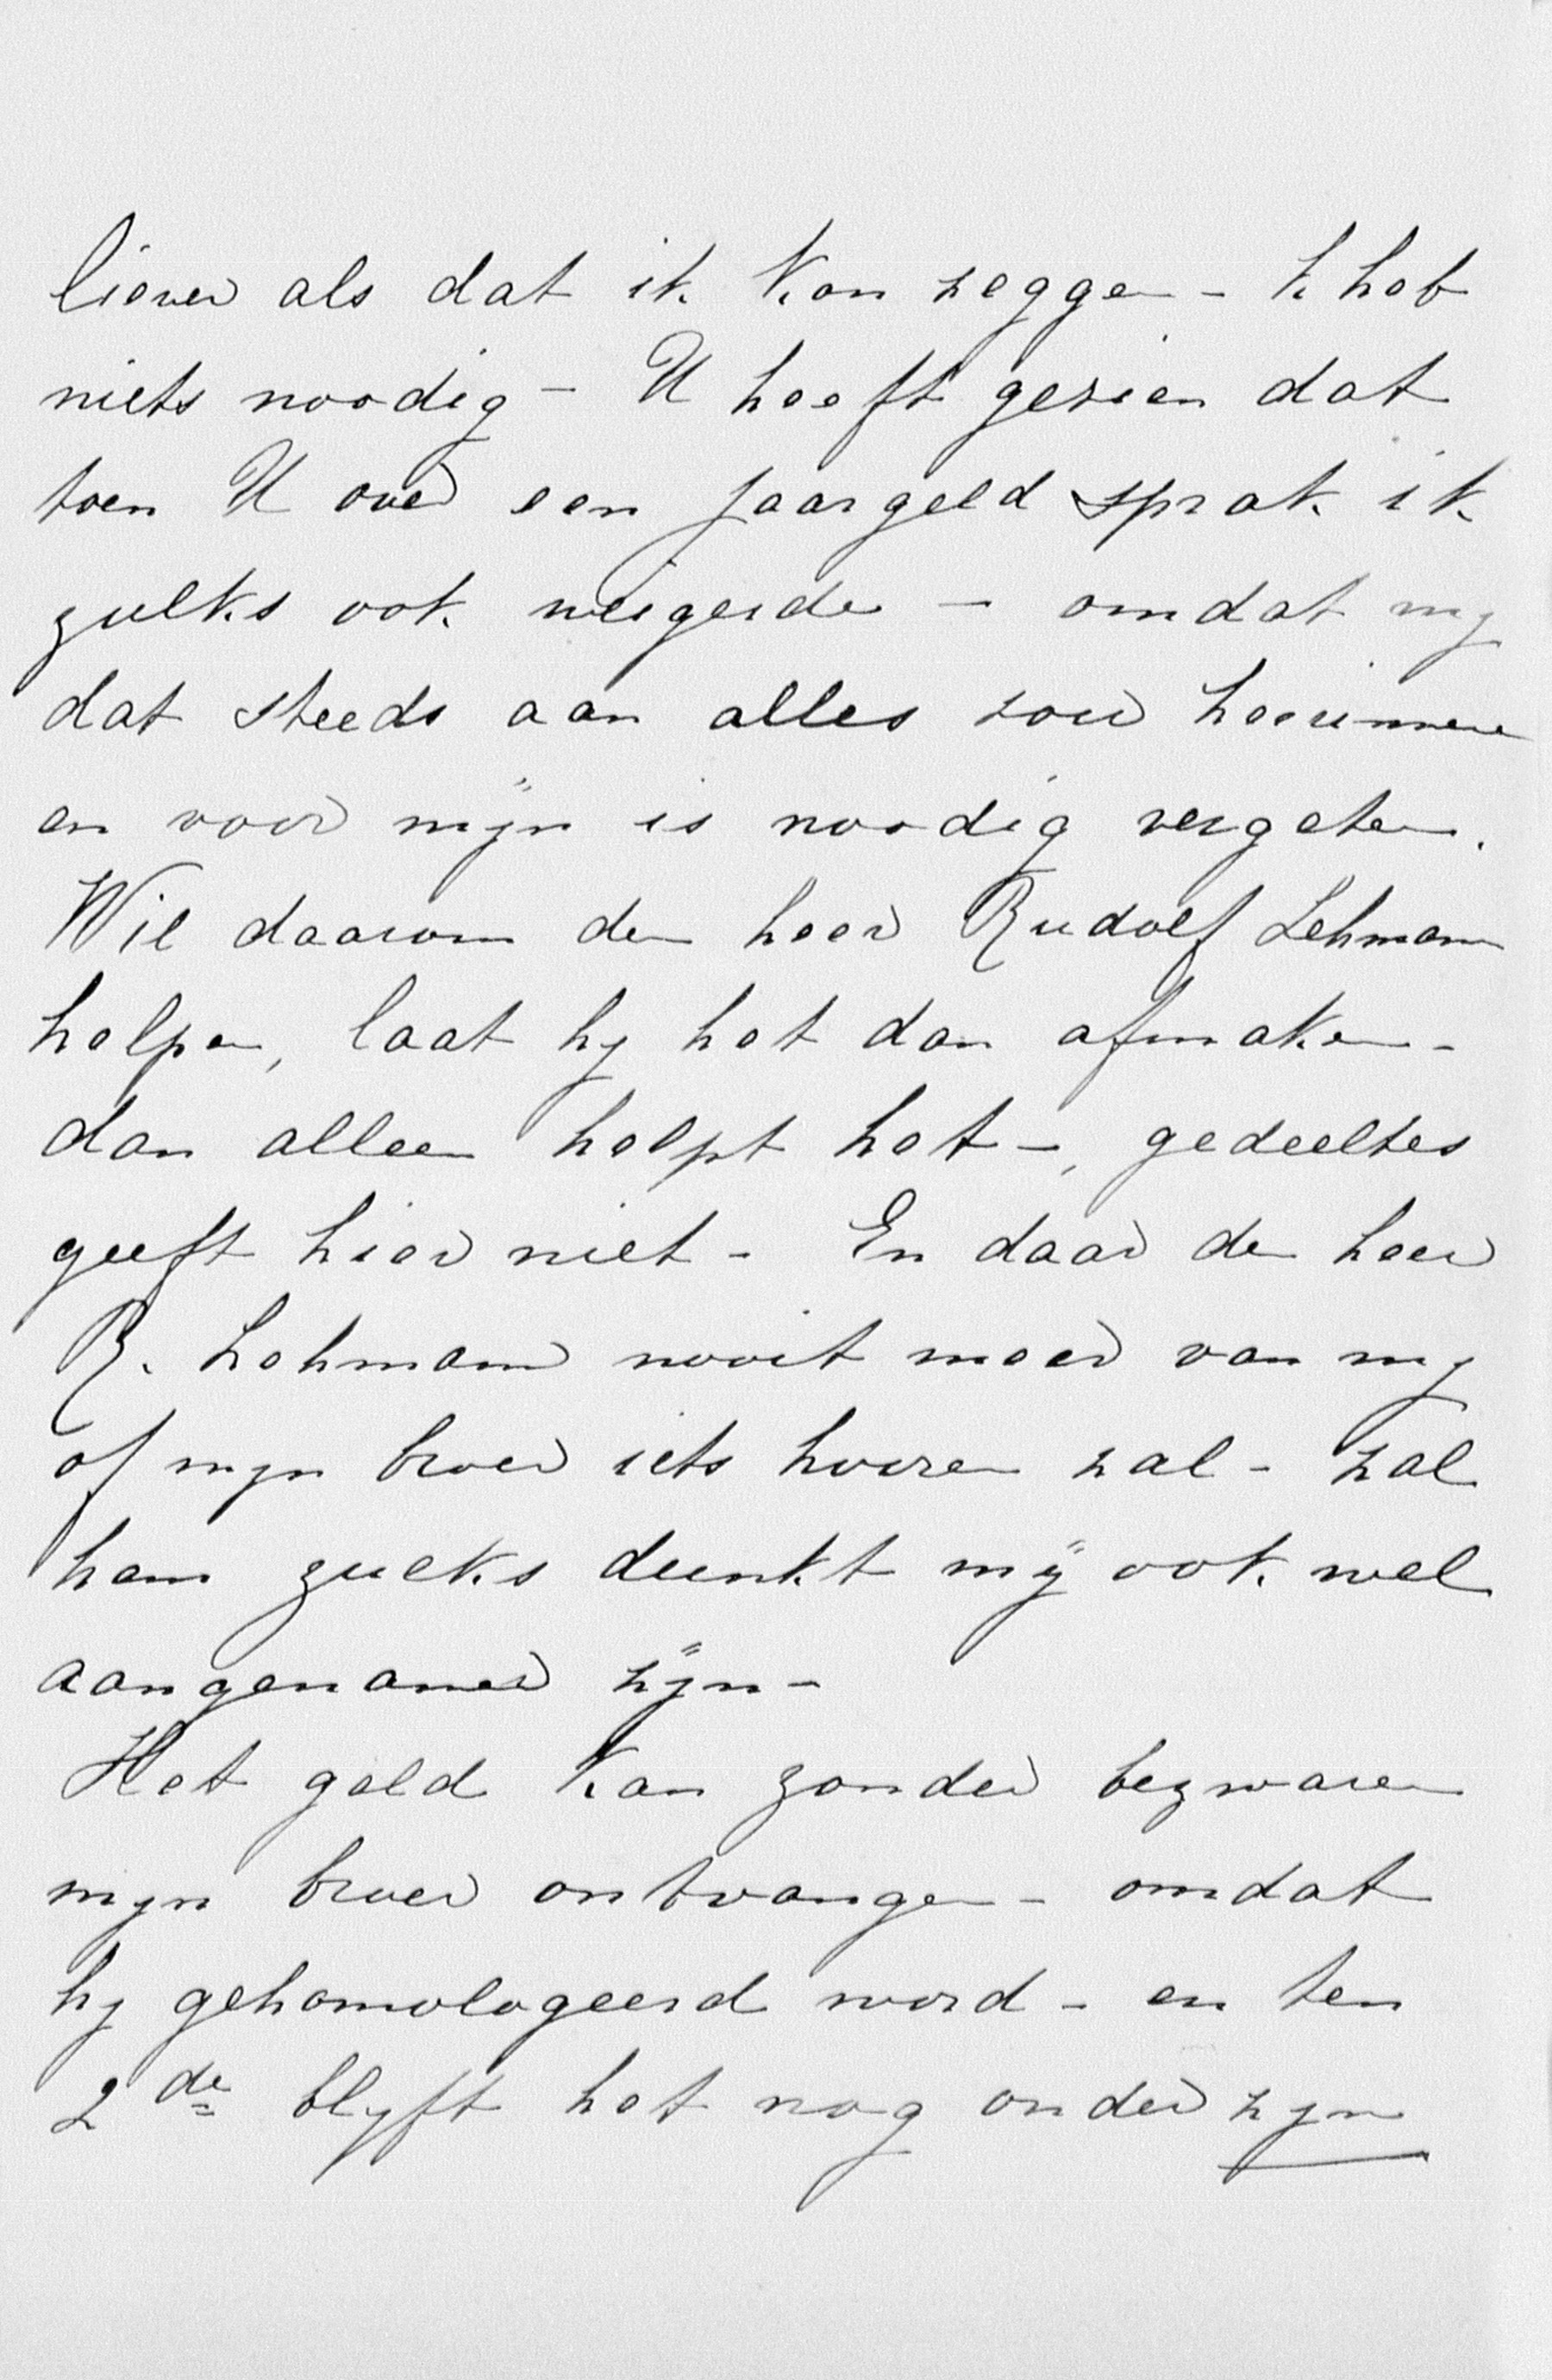 liever als dat ik kon zeggen - k heb
niets noodig - U heeft gezien dat
toen U over een jaargeld sprak ik
zulks ook weigerde - omdat mij
dat steeds aan alles zou herinneren
en voor mijn is noodig vergeten.
Wil daarom den heer Rudolf Lehmann
helpen, laat hij het dan afmaken -
dan alleen helpt het -, gedeeltes
geeft hier niet - En daar de heer
R. Lehmann nooit meer van mij
of mijn broer iets hooren zal - zal
hem zulks dunkt mij ook wel
aangenamer zijn -
Het geld kan zonder bezwaren
mijn broer ontvangen - omdat
hij gehomologeerd word - en ten
2de blijft het nog onder zijn